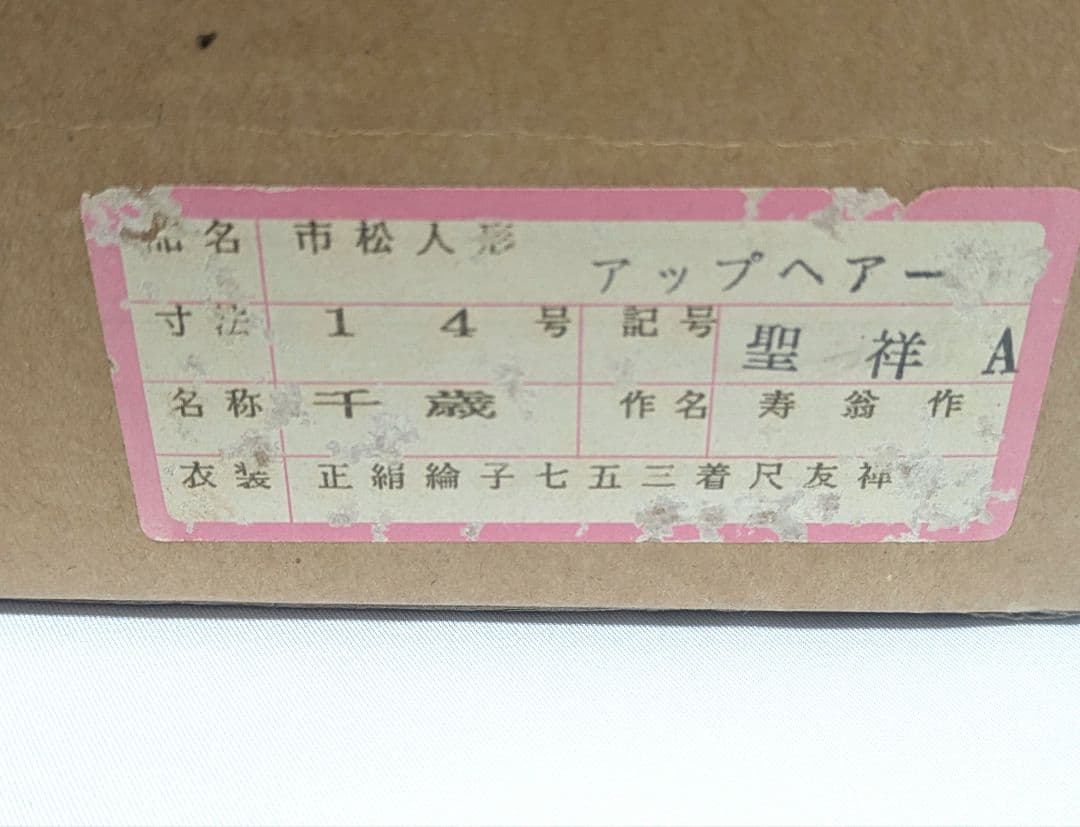 品名 市松人形
アップヘアー
寸法 14号 記号 聖祥A
名称 千歳 作名 寿翁作
衣装 正絹綸子七五三着尺友禅